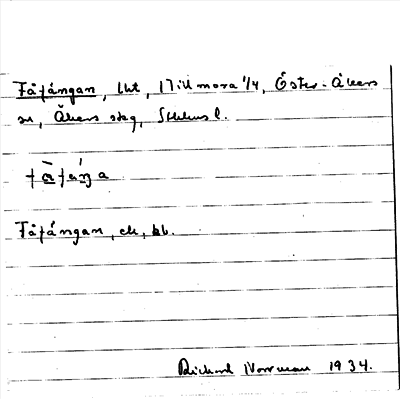 Fåfängan, lht, Tillmora 1/4, Öster-Åkers
sn, Åkers skg, Sthlms l.
fåfäŋa
Fåfängan, ek, kb.
Rickard Norrman 1934.